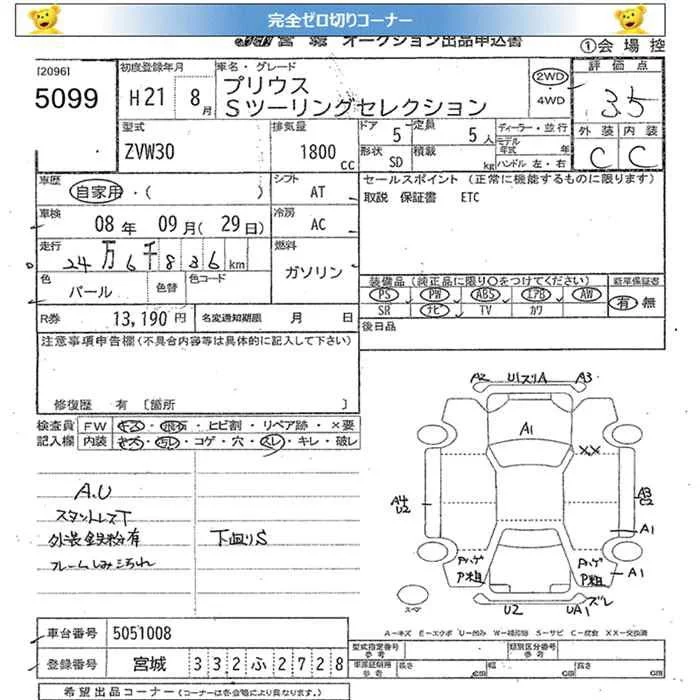 完全ゼロ切りコーナー
オークション出品申込書
①会 場 控
[2096]
5099
初度登録年月
H21 8月
車名・グレード
プリウス
Sツーリングセレクション
2WD
・4WD
評 価 点
3.5
外 装 内 装
C C
型式
ZVW30
排気量
1800 cc
ドア 5
定員 5人
ディーラー・並行
モデル年式 年
形状 SD
積載 kg
ハンドル 左・右
車歴
自家用・( )
シフト
AT
セールスポイント (正常に機能するものに限ります)
取説 保証書 ETC
車検
08年 09月(29日)
冷房
AC
走行
24万6千836km
燃料
ガソリン
色
パール
色替
色コード
装備品(純正品に限り○をつけてください)
PS PW ABS エアB AW
SR ナビ TV カワ
新車保証書
有 無
R券 13,190円
名変通知期限 月 日
後日品
注意事項申告欄(不具合内容等は具体的に記入して下さい)
修復歴 有 〔箇所 〕
検査員記入欄
FW キズ・飛石・ヒビ割・リペア跡・×要
内装 キズ・汚レ・コゲ・穴・スレ・キレ・破レ
A.U
スタットレスT
外装鉄粉有
下廻りS
フレームしみ汚れ
A2 U1ズリA A3
A1
XX
A4
U2
A3
C2
A1
Aハゲ
P粗
Aハゲ
P粗
A1
スマ
U2 UA1 ズレ
A-キズ E-エクボ U-凹み W-補修跡 S-サビ C-腐食 XX-交換済
車台番号 5051008
登録番号 宮城 332ふ2728
型式指定番号 参考
類別区分番号 参考
車庫証明用 参考
長さ cm 幅 cm 高さ cm
希望出品コーナー(コーナーは各会場により異なります。)